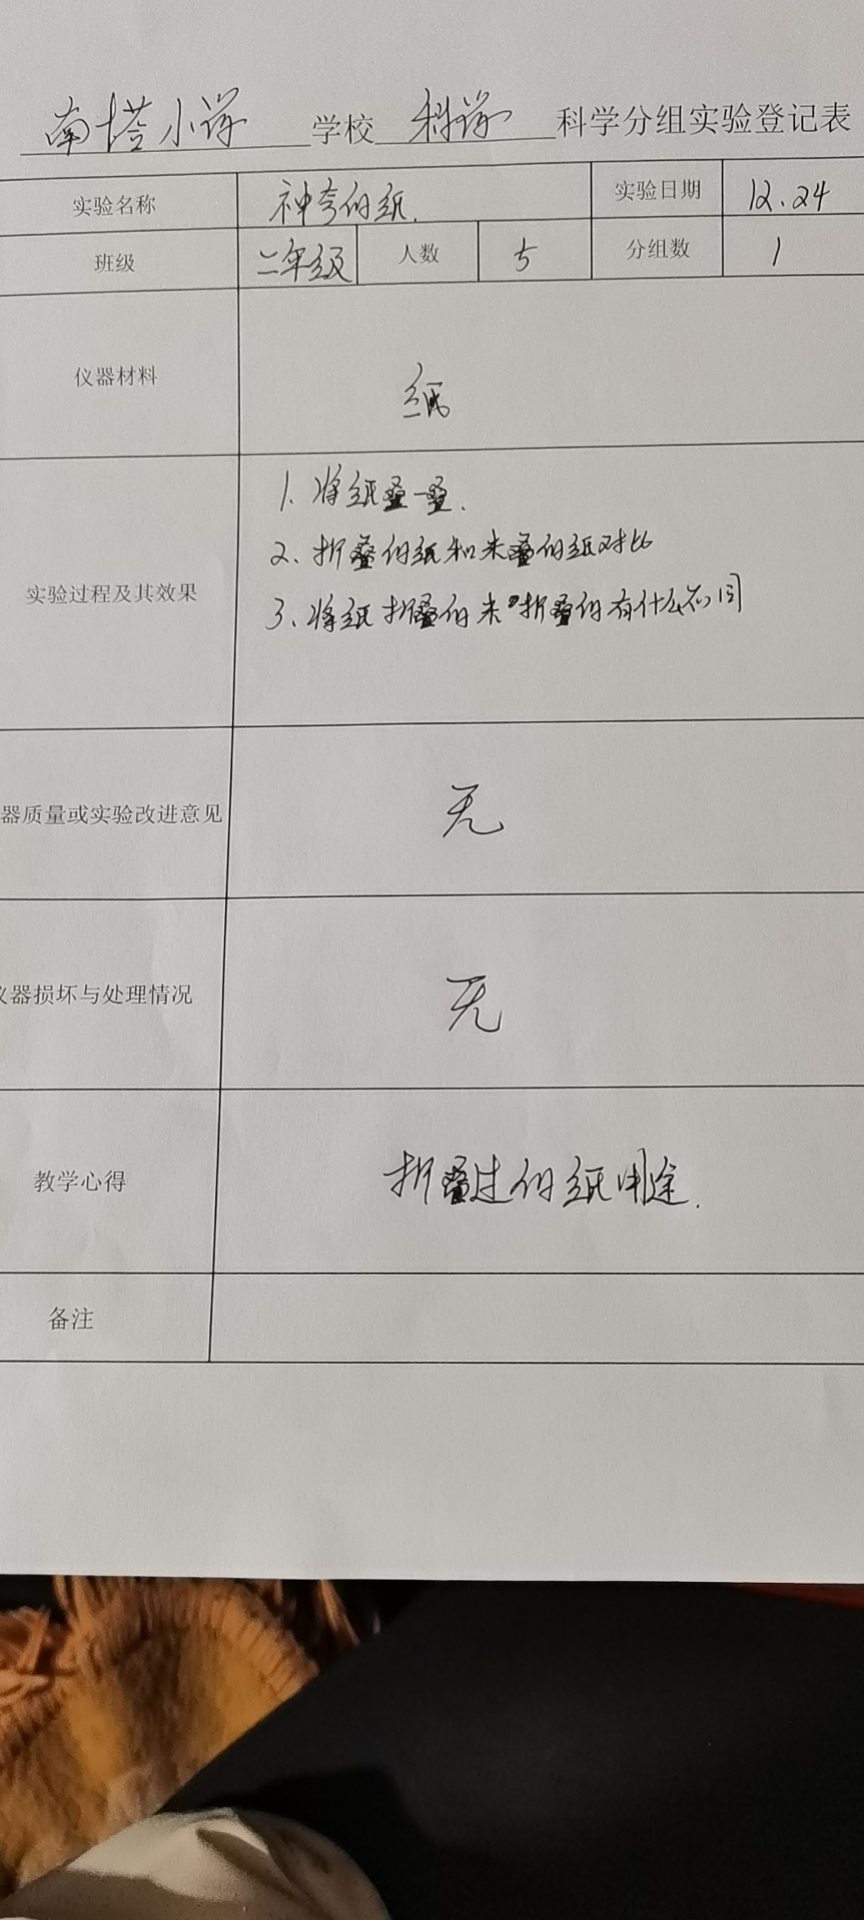 南塔小学 学校 科学 科学分组实验登记表
实验名称 神奇的纸. 实验日期 12.24
班级 二年级 人数 5 分组数 1
仪器材料 纸
实验过程及其效果
1. 将纸叠一叠.
2. 折叠的纸和未叠的纸对比
3. 将纸折叠的未折叠的有什么不同
器质量或实验改进意见 无
仪器损坏与处理情况 无
教学心得 折叠过的纸用途.
备注